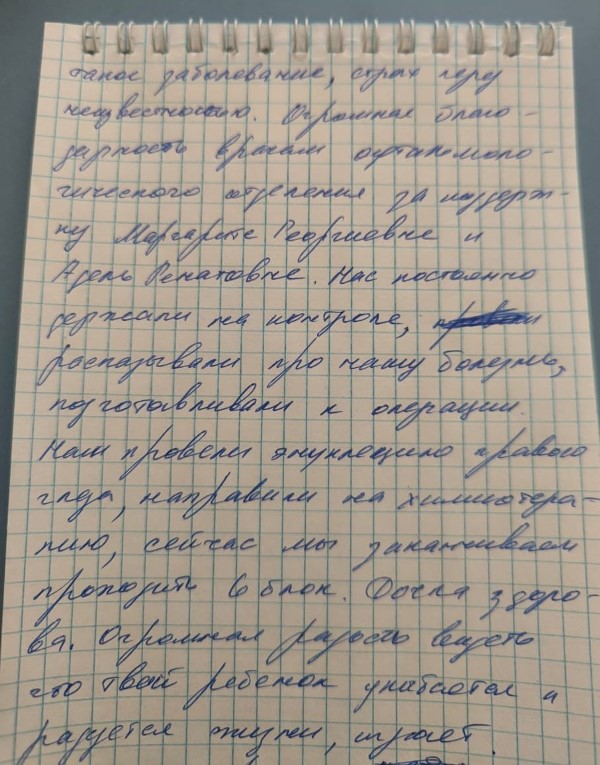 такое заболевание, страх пере
неизвестностью. Огромная благо-
дарность врачам офтальмоло-
гического отделения за поддерж-
ку Маргарите Георгиевне и
Адель Ренатовне. Нас постоянно
держали на контроле,
рассказывали про нашу болезнь,
подготавливали к операции.
Нам провели энуклеацию правого
глаза, направили на химиотера-
пию, сейчас мы заканчиваем
проходить 6 блок. Дочка здоро-
ва. Огромная радость видеть
что твой ребенок улыбается и
радуется жизни, играет.